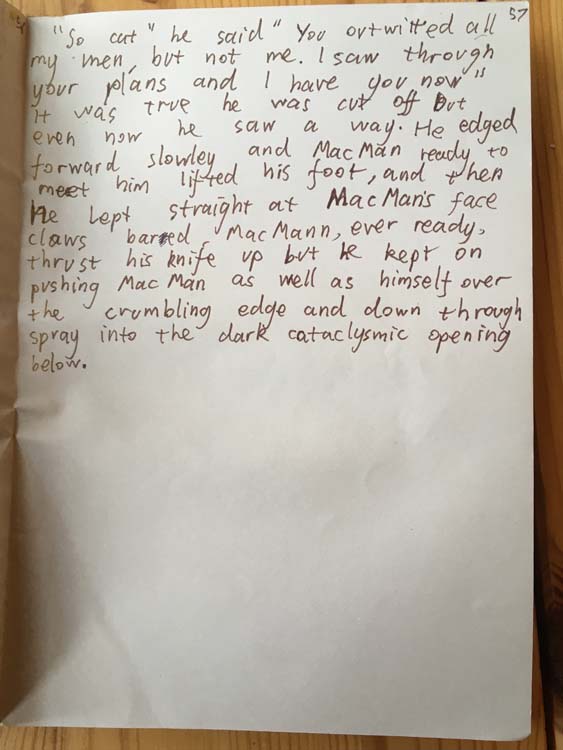 57
"So cat" he said "You outwitted all
my men, but not me. I saw through
your plans and I have you now"
It was true he was cut off but
even now he saw a way. He edged
forward slowley and MacMan ready to
meet him lifted his foot, and then
He lept straight at MacMan's face
claws barred, MacMann, ever ready,
thrust his knife up but he kept on
pushing MacMan as well as himself over
the crumbling edge and down through
spray into the dark cataclysmic opening
below.